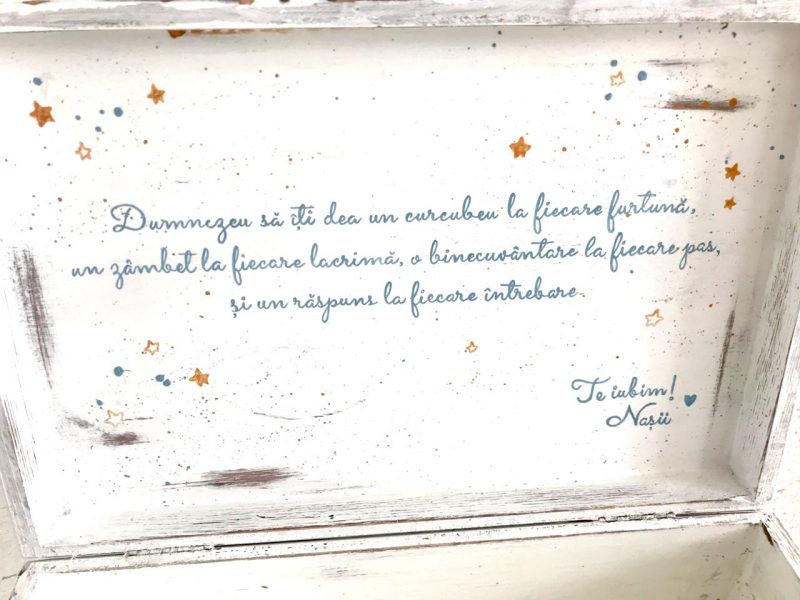 Dumnezeu să îți dea un curcubeu la fiecare furtună,
un zâmbet la fiecare lacrimă, o binecuvântare la fiecare pas,
și un răspuns la fiecare întrebare.
Te iubim!
Nașii